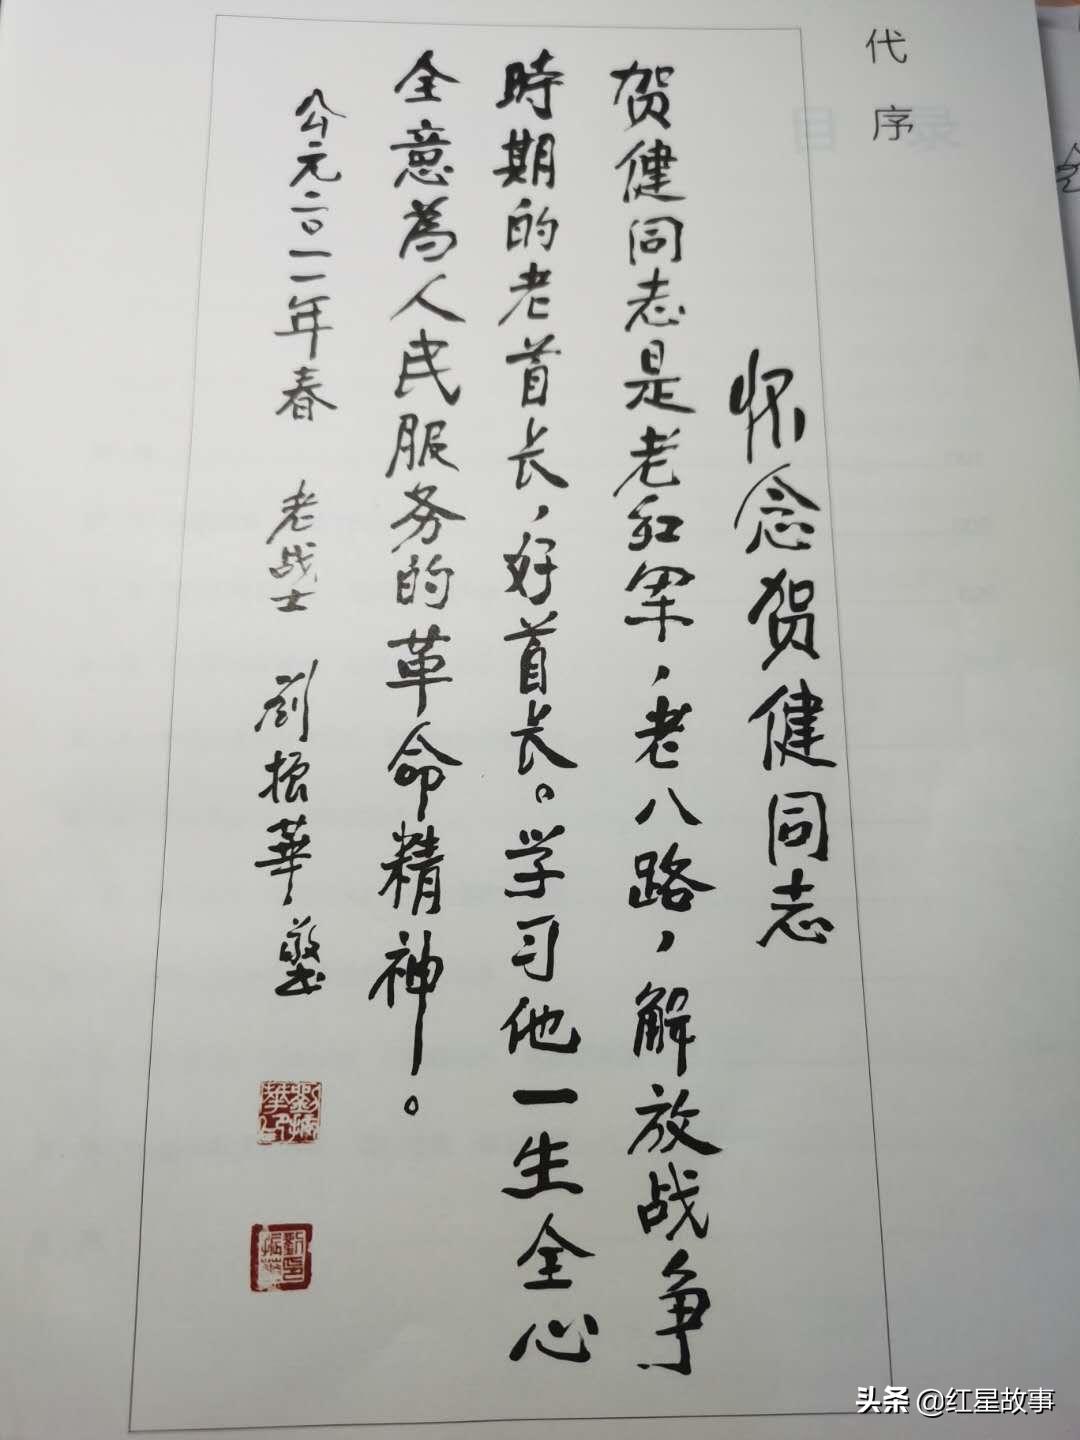 代序
怀念贺健同志
贺健同志是老红军，老八路，解放战争
時期的老首长，好首长。学习他一生全心
全意為人民服务的革命精神。
公元二〇一一年春 老战士 劉振華 敬書
头条 @红星故事